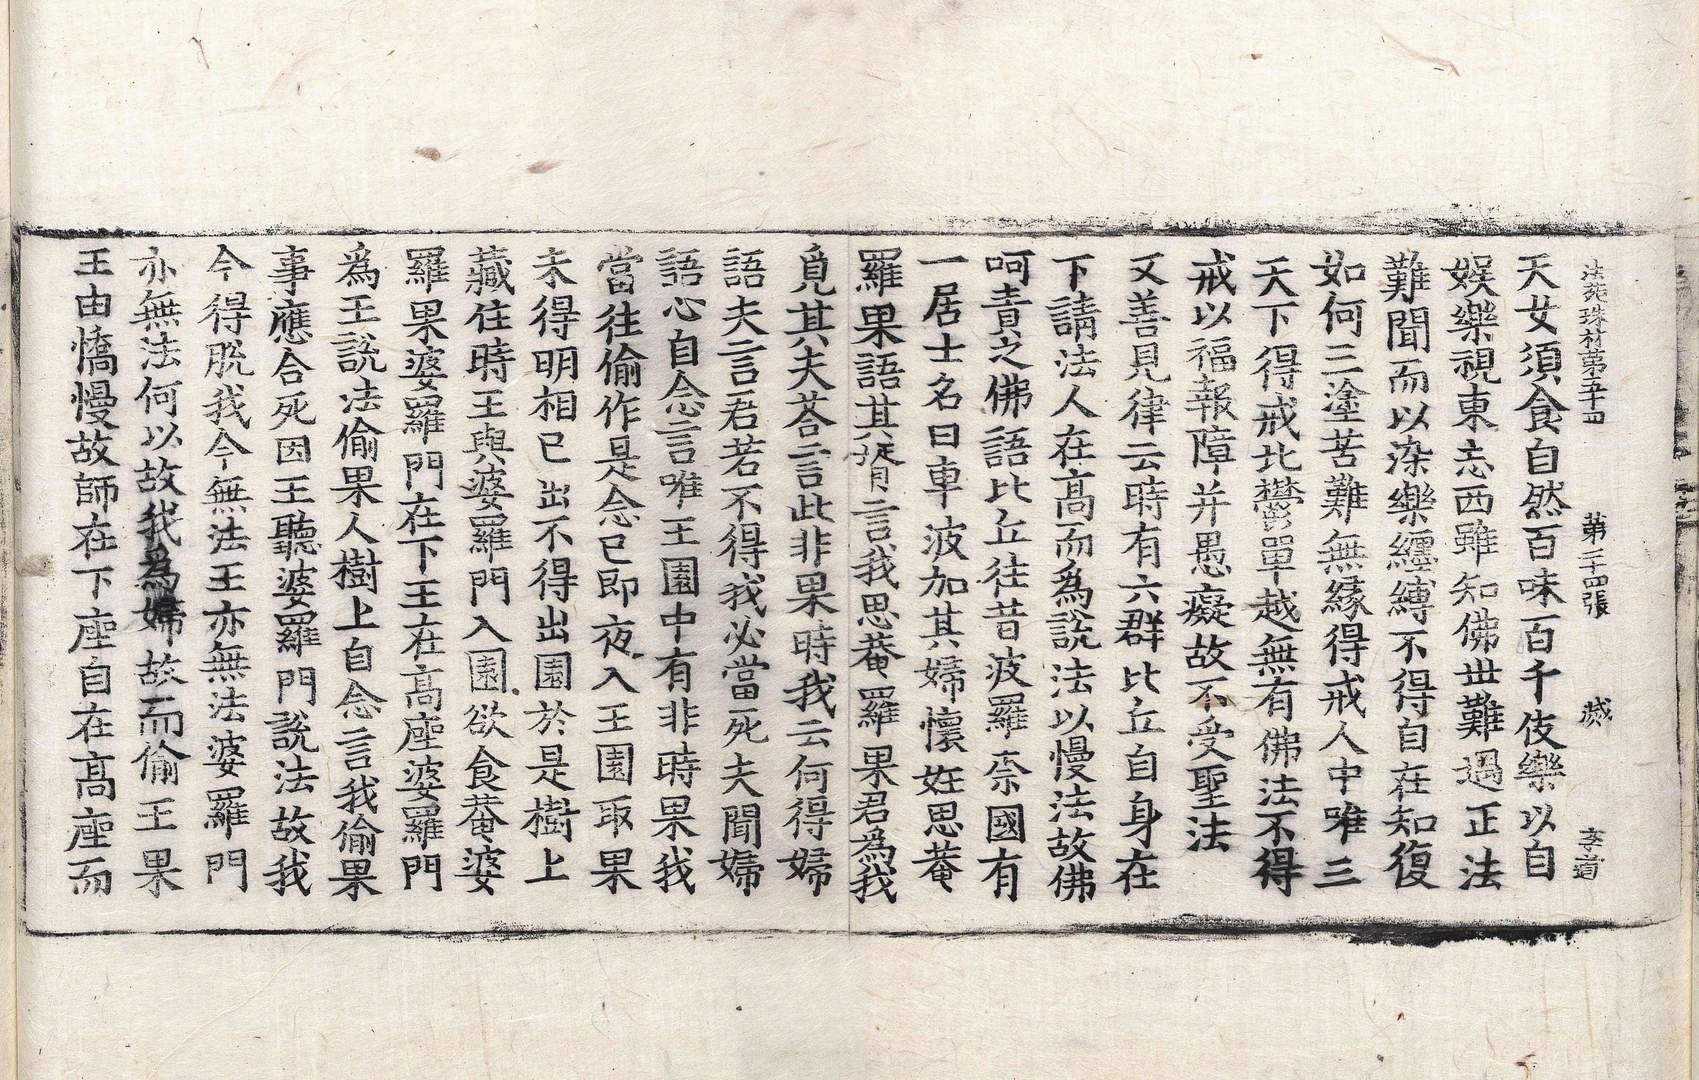 法苑珠林第五十四 第二十四張 㦲 李道
天女須食自然百味百千伎樂以自
娛樂視東忘西雖知佛世難遇正法
難聞而以深樂纏縛不得自在知復
如何三塗苦難無緣得戒人中唯三
天下得戒北欝單越無有佛法不得
戒以福報障并愚癡故不受聖法
又善見律云時有六群比丘自身在
下請法人在高而為說法以慢法故佛
呵責之佛語比丘往昔波羅柰國有
一居士名曰車波加其婦懷姙思菴
羅果語其壻言我思菴羅果君為我
覓其夫荅言此非果時我云何得婦
語夫言君若不得我必當死夫聞婦
語心自念言唯王園中有非時果我
當往偷作是念已即夜入王園取果
未得明相已出不得出園於是樹上
藏住時王與婆羅門入園欲食菴婆
羅果婆羅門在下王在高座婆羅門
為王說法偷果人樹上自念言我偷果
事應合死因王聽婆羅門說法故我
今得脫我今無法王亦無法婆羅門
亦無法何以故我為婦故而偷王果
王由憍慢故師在下座自在高座而